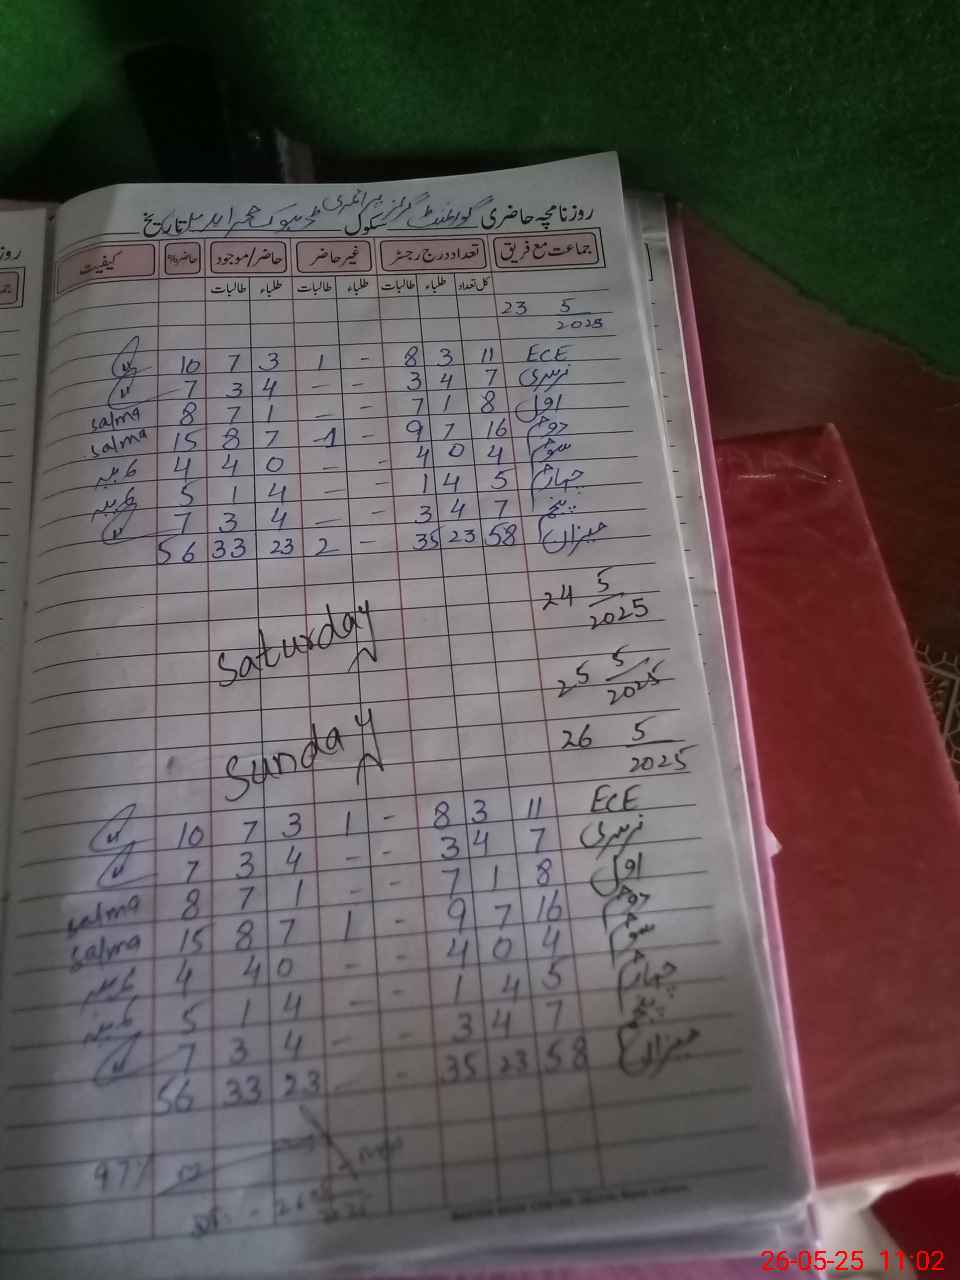 روزنامچہ حاضری گورنمنٹ گرلز پرائمری سکول تاریخ
جماعت مع فریق تعداد درج رجسٹر غیر حاضر حاضر/موجود حاضر% کیفیت
کل تعداد طلباء طالبات طلباء طالبات طلباء طالبات
23 5/2025
ECE 11 3 8 - 1 3 7 10
نرسری 7 4 3 - - 4 3 7
اول 8 1 7 - - 1 7 8 salma
دوئم 16 7 9 - 1 7 8 15 salma
سوئم 4 0 4 - - 0 4 4
چہارم 5 4 1 - - 4 1 5
پنجم 7 4 3 - - 4 3 7
میزان 58 23 35 - 2 23 33 56
24 5/2025
Saturday
25 5/2025
Sunday
26 5/2025
ECE 11 3 8 - 1 3 7 10
نرسری 7 4 3 - - 4 3 7
اول 8 1 7 - - 1 7 8 salma
دوئم 16 7 9 - 1 7 8 15 salma
سوئم 4 0 4 - - 0 4 4
چہارم 5 4 1 - - 4 1 5
پنجم 7 4 3 - - 4 3 7
میزان 58 23 35 - - 23 33 56
97%
26-05-25 11:02